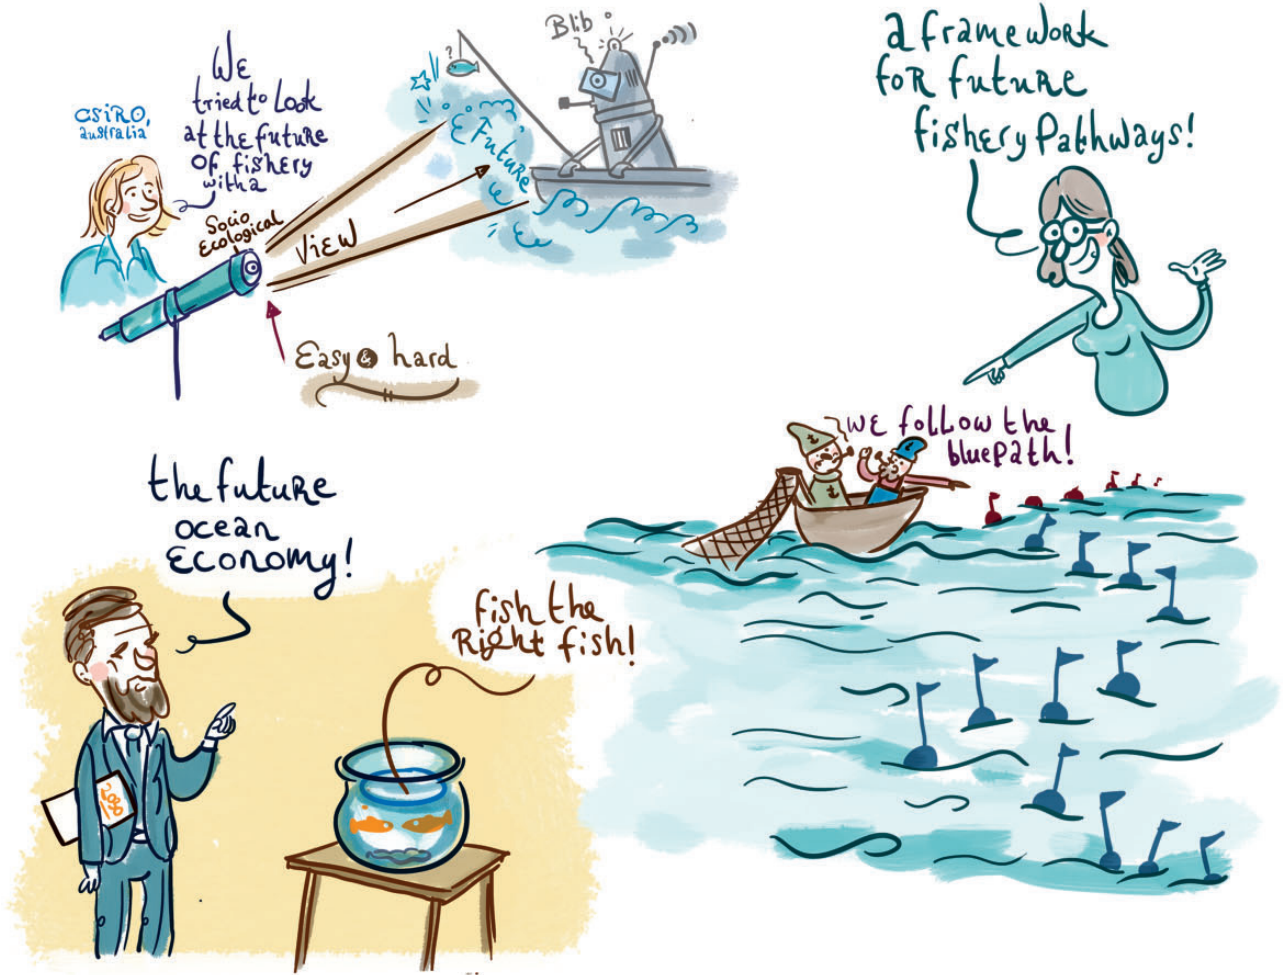 CSIRO,
australia
WE
tried to Look
at the future
OF fishery
with a
Socio
Ecological
VIEW
Future
?
Blib
Easy & hard
a framework
foR future
fishery Pathways!
WE follow the
bluepath!
the future
ocean
Economy!
fish the
Right fish!